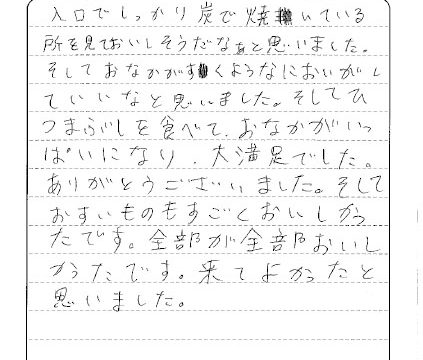 入口でしっかり炭で焼いている
所を見ておいしそうだなぁと思いました。
そしておなかがすくようなにおいがし
ていいなと思いました。そしてひ
つまぶしを食べて、おなかがいっ
ぱいになり、大満足でした。
ありがとうございました。そして
おすいものもすごくおいしかっ
たです。全部が全部おいし
かったです。来てよかったと
思いました。